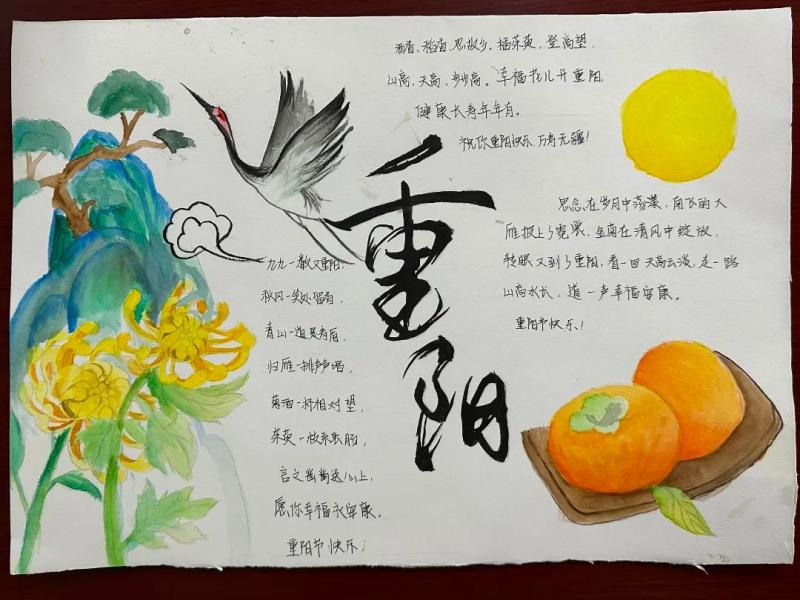 酒香、稻香、思故乡，插茱萸，登高望，
山高、天高、步步高。幸福花儿开重阳，
健康长寿年年有。
祝你重阳快乐，万寿无疆！
重阳
思念，在岁月中荡漾，南飞的大
雁披上了霓裳，金菊在清风中绽放，
转眼又到了重阳，看一回天高云淡，走一路
山高水长，道一声幸福安康。
重阳节快乐！
九九一数又重阳，
秋风一笑处留香，
青山一道是寿眉，
归雁一排声声唱，
菊酒一杯相对望，
茱萸一枝系
言之凿凿送心上，
愿你幸福永安康。
重阳节快乐！